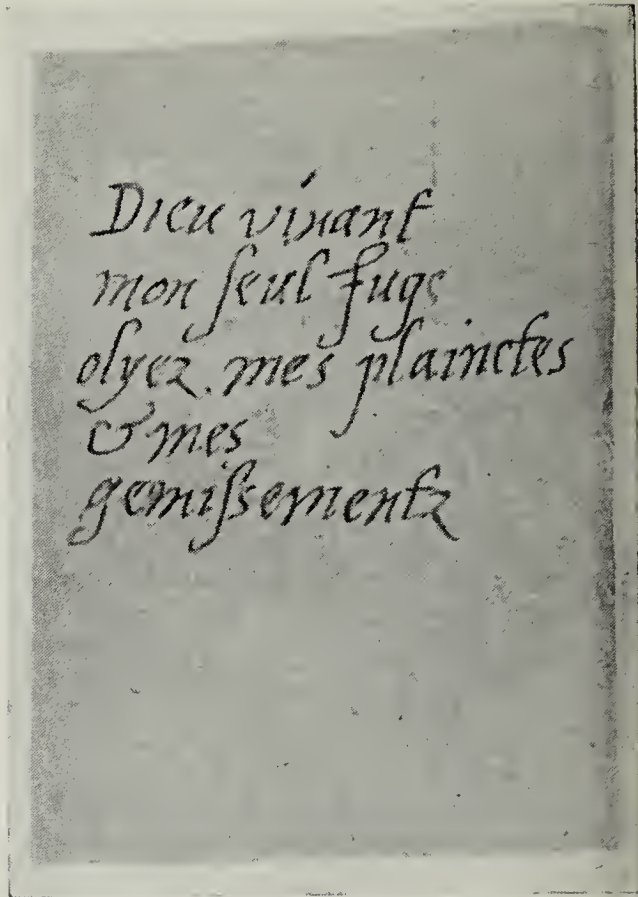 Dieu viuant
mon seul Juge
oÿez mes plainctes
& mes
gemissementz